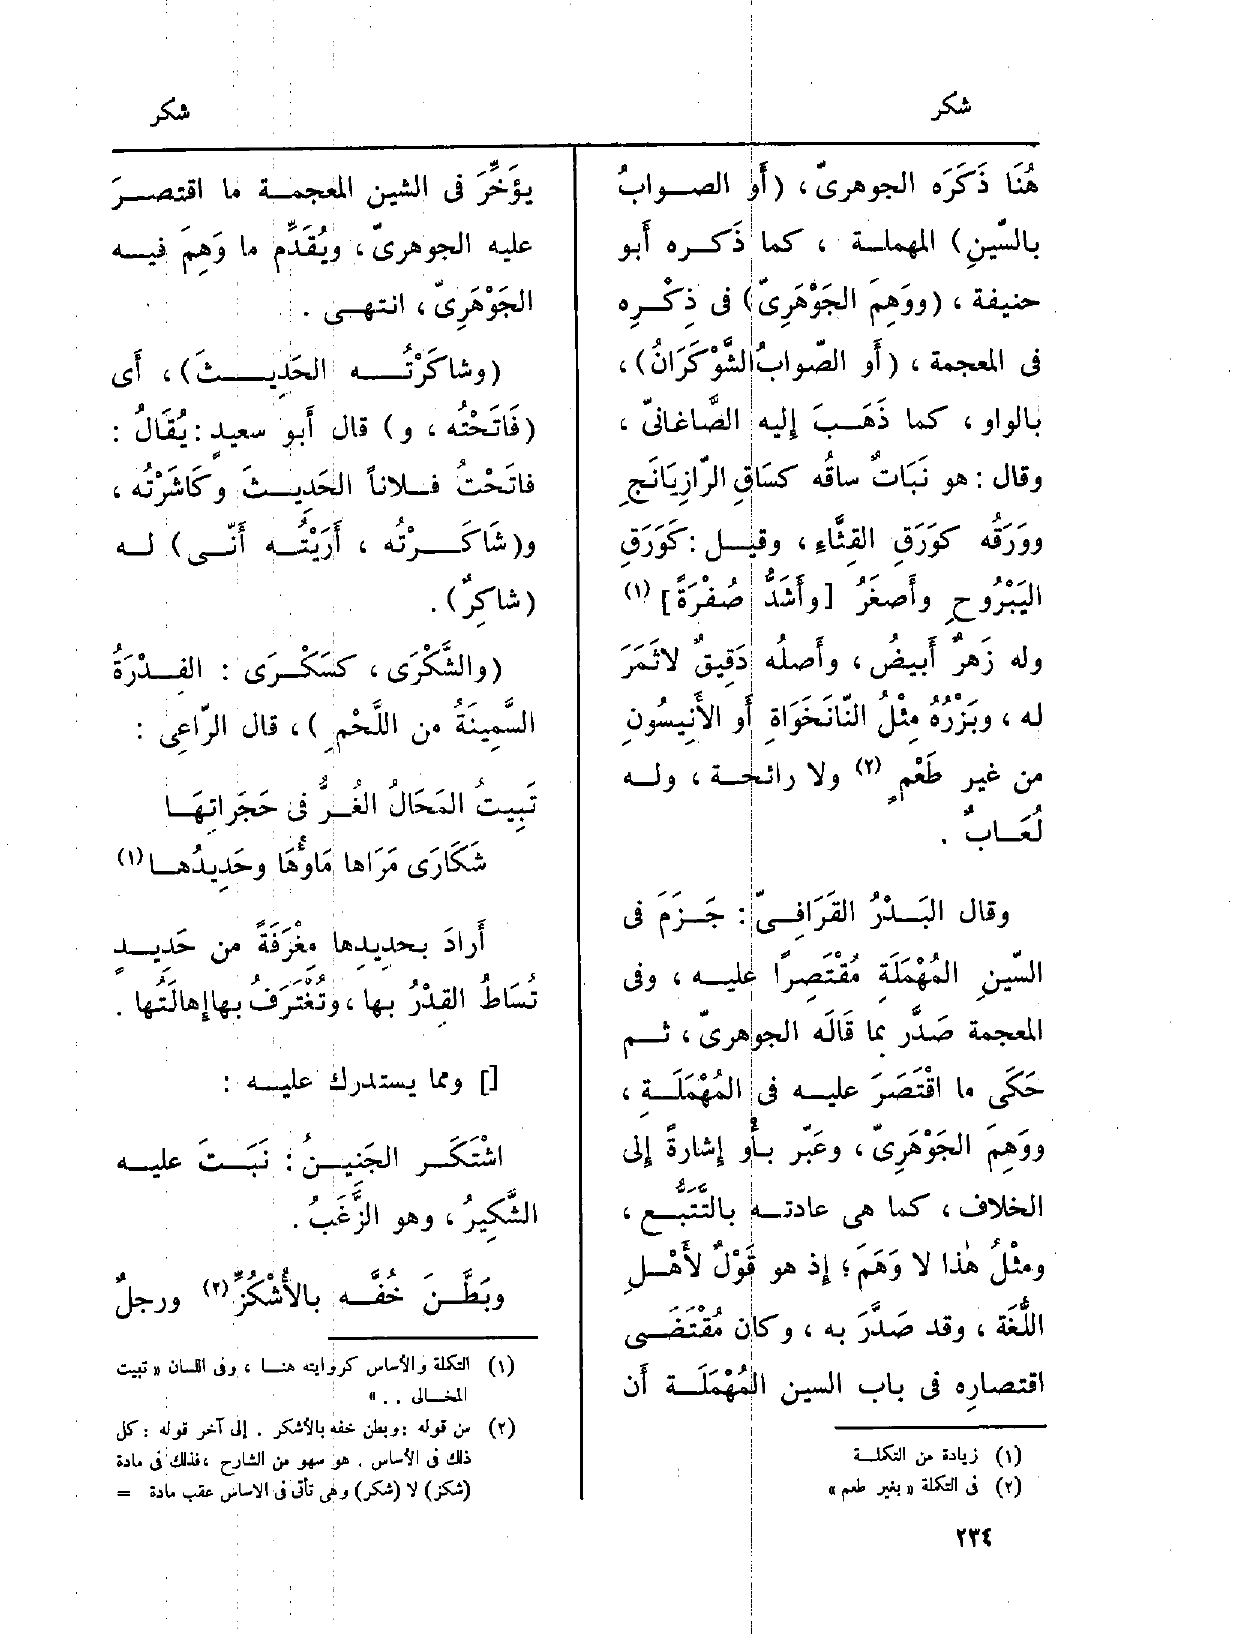 شكر
هُنَا ذَكَرَه الجوهرىّ، (أَو الصــوابُ
بالسِّينِ) المهملــة ، كما ذَكــره أَبو
حنيفة ، (ووَهِمَ الجَوْهَرِىّ) فى ذِكْــرِه
فى المعجمة ، (أَو الصّوابُ الشَّوْكَرَانُ) ،
بالواو ، كما ذَهَــبَ إِليه الصَّاغانىّ ،
وقال : هو نَبَاتٌ ساقُه كسَاقِ الرّازِيَانَجِ
ووَرَقُه كوَرَقِ القِثَّاءِ ، وقيــل : كَوَرَقِ
اليَبْرُوحِ وأَصغَرُ [وأَشَدُّ صُفْرَةً] (١)
وله زَهرٌ أَبيضُ ، وأَصلُه دَقِيقٌ لاثَمَرَ
له ، وبَزْرُهُ مِثْلُ النّانَخَوَاةِ أَو الأَنِيسُونِ
من غير طَعْمٍ (٢) ولا رائحــة ، ولــه
لُعَــابٌ .
وقال البَــدْرُ القَرَافِــىّ : جَــزَمَ فى
السِّينِ المُهْمَلَةِ مُقْتَصِرًا عليــه ، وفى
المعجمة صَدَّر بما قَالَه الجوهرىّ ، ثــم
حَكَى ما اقْتَصَرَ عليــه فى المُهْمَلَــةِ ،
ووَهِمَ الجَوْهَرِىّ ، وعَبّر بــأَو إِشارةً إِلى
الخلاف ، كما هى عادتــه بالتَّتَبُّــع ،
ومثْلُ هٰذا لا وَهَمَ ؛ إِذ هو قَوْلٌ لأَهْــلِ
اللُّغَة ، وقد صَدَّرَ به ، وكان مُقْتَضَــى
اقتصارِه فى باب السين المُهْمَلَــة أَن
(١) زيادة من التكملــة
(٢) فى التكملة « بغير طعم »
٢٣٤
شكر
يؤَخَّرَ فى الشين المعجمــة ما اقتصــرَ
عليه الجوهرىّ ، ويُقَدَّم ما وَهِمَ فيــه
الجَوْهَرِىّ ، انتهــى .
(وشاكَرْتُــــه الحَدِيــــثَ) ، أَى
(فَاتَحْتُه ، و) قال أَبو سعيدٍ : يُقَالُ :
فاتَحْتُ فــلاناً الحَدِيــثَ وكَاشَرْتُه ،
و(شَاكَــــرْتُه ، أَرَيْتُــه أَنّــى) لــه
(شاكِرٌ) .
(والشَّكْرَى ، كسَكْــرَى : الفِــدْرَةُ
السَّمِينَةُ من اللَّحْمِ ) ، قال الرّاعِى :
تَبِيتُ المَحَالُ الغُــرُّ فى حَجَراتِهَــا
شَكَارَى مَرَاها مَاؤُهَا وحَدِيدُهــا (١)
أَرادَ بحديدها مِغْرَفَةً من حَدِيــدٍ
تُسَاطُ القِدْرُ بها ، وتُغْتَرَفُ بها إِهالَتُها .
[] ومما يستدرك عليــه :
اشْتَكَــر الجَنِيــنُ : نَبَــتَ عليــه
الشَّكِيرُ ، وهو الزَّغَبُ .
وبَطَّــنَ خُفَّــه بالأُشْكُزِّ (٢) ورجلٌ
(١) التكملة والأساس كروايته هنــا ، وفى اللسان « تبيت
المخــالى . . »
(٢) من قوله : وبطن خفه بالأشكر . إلى آخر قوله : كل
ذلك فى الأساس . هو سهو من الشارح ، فذلك فى مادة
(شكز) لا (شكر) وهى تأتى فى الاساس عقب مادة =